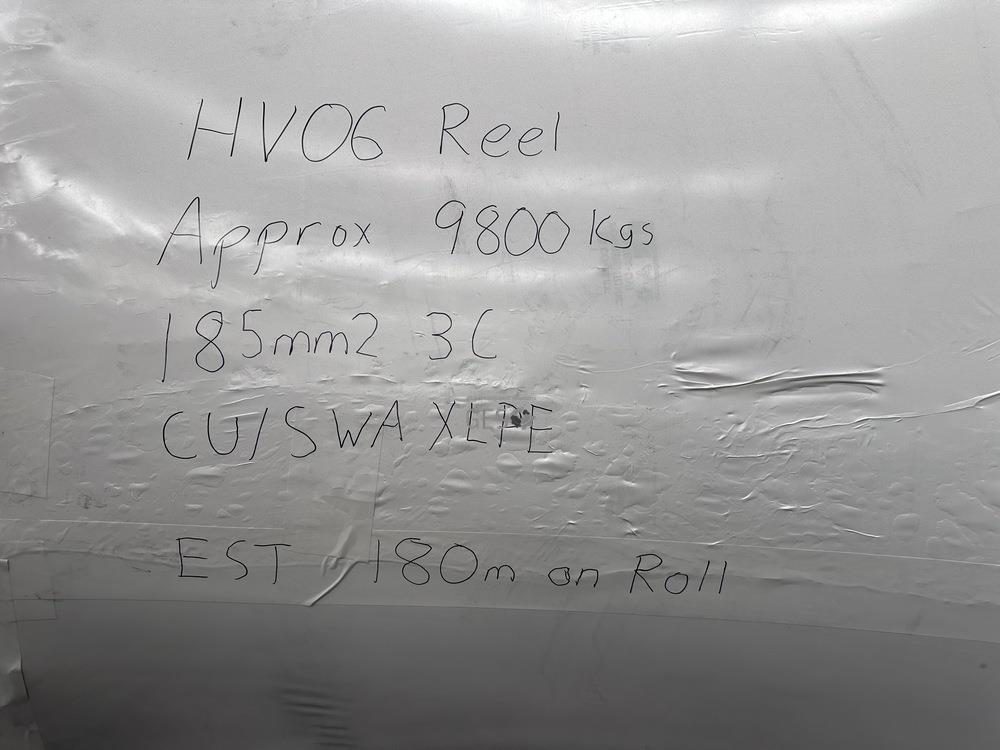 HV06 Reel
Approx 9800 Kgs
185mm2 3C
CU/SWA XLPE
EST 180m on Roll